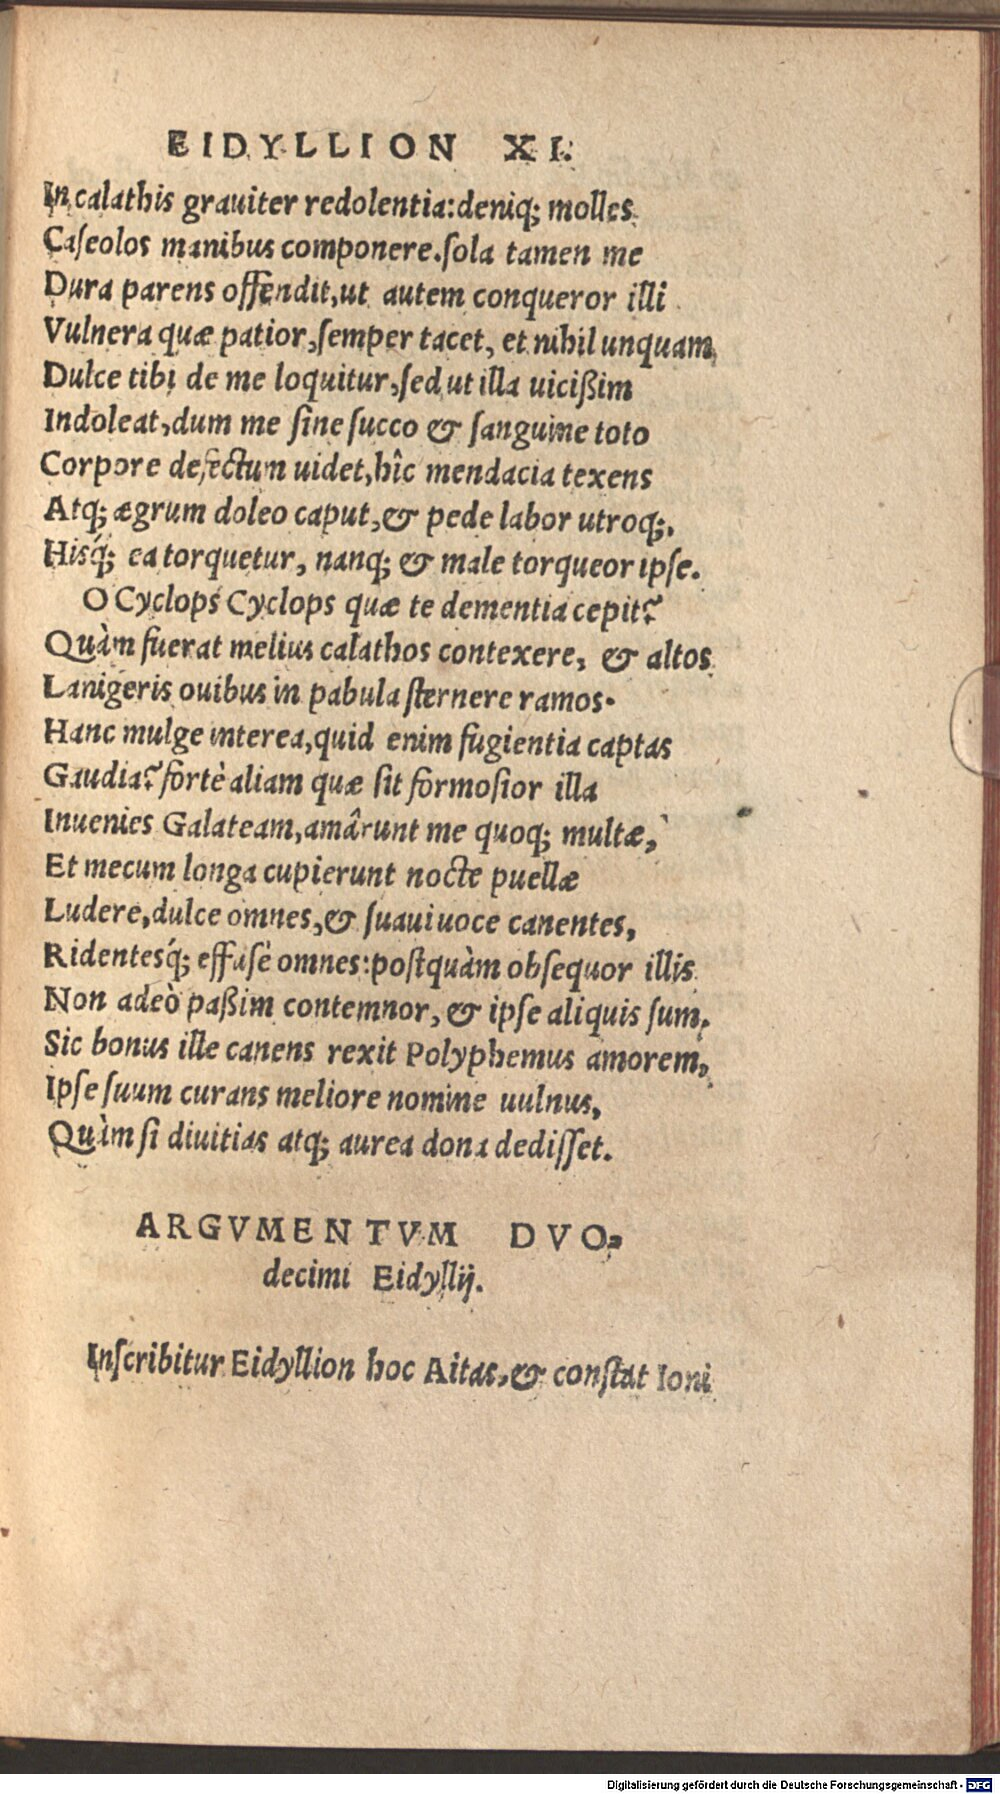 EIDYLLION XI.
In calathis grauiter redolentia:deniq; molles
Caſeolos manibus componere.ſola tamen me
Dura parens offendit,ut autem conqueror illi
Vulnera quæ patior,ſemper tacet, et nihil unquam
Dulce tibi de me loquitur,ſed ut illa uicißim
Indoleat,dum me ſine ſucco & ſanguine toto
Corpore defectum uidet,hîc mendacia texens
Atq; ægrum doleo caput,& pede labor utroq;.
Hisq́; ea torquetur, nanq; & male torqueor ipſe.
O Cyclops Cyclops quæ te dementia cepit?
Quàm fuerat melius calathos contexere, & altos
Lanigeris ouibus in pabula ſternere ramos.
Hanc mulge interea,quid enim fugientia captas
Gaudia? fortè aliam quæ ſit formoſior illa
Inuenies Galateam,amârunt me quoq; multæ,
Et mecum longa cupierunt nocte puellæ
Ludere,dulce omnes,& ſuaui uoce canentes,
Ridentesq́; effusè omnes:poſtquàm obſequor illis
Non adeò paßim contemnor, & ipſe aliquis ſum.
Sic bonus ille canens rexit Polyphemus amorem,
Ipſe ſuum curans meliore nomine uulnus,
Quàm ſi diuitias atq; aurea dona dediſſet.
ARGVMENTVM DVO-
decimi Eidyllij.
Inſcribitur Eidyllion hoc Aitas,& conſtat Ioni
Digitalisierung gefördert durch die Deutsche Forschungsgemeinschaft - DFG